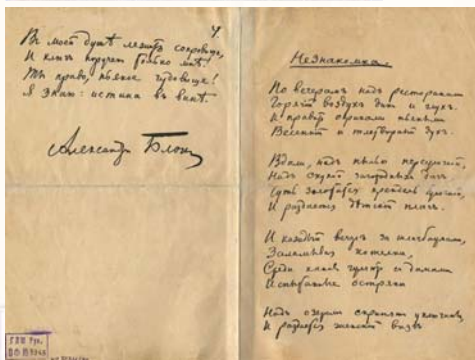 4.
Въ моей душѣ лежитъ сокровище,
И ключъ порученъ только мнѣ!
Ты право, пьяное чудовище!
Я знаю: истина въ винѣ.
Александръ Блокъ
Незнакомка.
По вечерамъ надъ ресторанами
Горячій воздухъ дикъ и глухъ.
И правитъ окриками пьяными
Весенній и тлетворный духъ.
Вдали, надъ пылью переулочной,
Надъ скукой загородныхъ дачъ
Чуть золотится крендель булочной,
И раздается дѣтскій плачъ.
И каждый вечеръ за шлагбаумами,
Заламывая котелки,
Среди канавъ гуляютъ съ дамами
Испытанные остряки
Надъ озеромъ скрипятъ уключины,
И раздается женскій визгъ